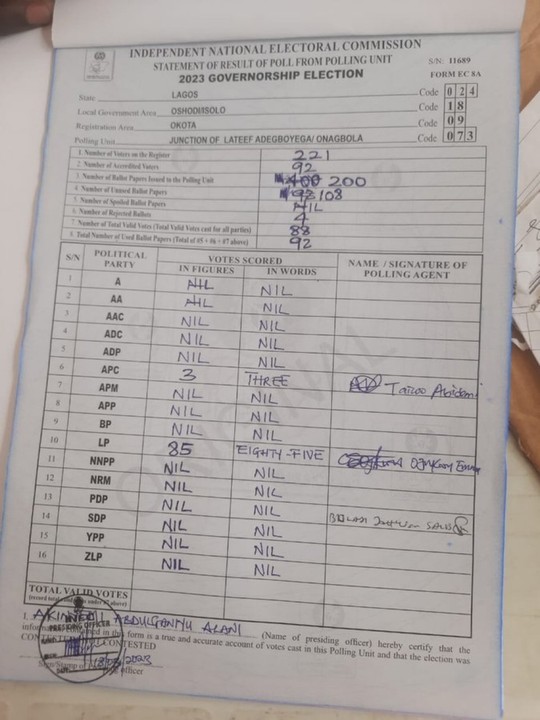 INDEPENDENT NATIONAL ELECTORAL COMMISSION
STATEMENT OF RESULT OF POLL FROM POLLING UNIT
S/N: 11689
2023 GOVERNORSHIP ELECTION
FORM EC 8A
State LAGOS Code 024
Local Government Area OSHODI/ISOLO Code 18
Registration Area OKOTA Code 09
Polling Unit JUNCTION OF LATEEF ADEGBOYEGA/ ONAGBOLA Code 073
1. Number of Voters on the Register 221
2. Number of Accredited Voters 92
3. Number of Ballot Papers Issued to the Polling Unit 200
4. Number of Unused Ballot Papers 108
5. Number of Spoiled Ballot Papers NIL
6. Number of Rejected Ballots 4
7. Number of Total Valid Votes (Total Valid Votes cast for all parties) 88
8. Total Number of Used Ballot Papers (Total of #5 + #6 + #7 above) 92
S/N POLITICAL PARTY VOTES SCORED NAME / SIGNATURE OF POLLING AGENT
IN FIGURES IN WORDS
1 A NIL NIL
2 AA NIL NIL
3 AAC NIL NIL
4 ADC NIL NIL
5 ADP NIL NIL
6 APC 3 THREE
7 APM NIL NIL
8 APP NIL NIL
9 BP NIL NIL
10 LP 85 EIGHTY-FIVE
11 NNPP NIL NIL
12 NRM NIL NIL
13 PDP NIL NIL
14 SDP NIL NIL
15 YPP NIL NIL
16 ZLP NIL NIL
TOTAL VALID VOTES
I, ABDULGANIYU ALANI (Name of presiding officer) hereby certify that the
information contained in this form is a true and accurate account of votes cast in this Polling Unit and that the election was
CONTESTED
PRESIDING OFFICER
officer